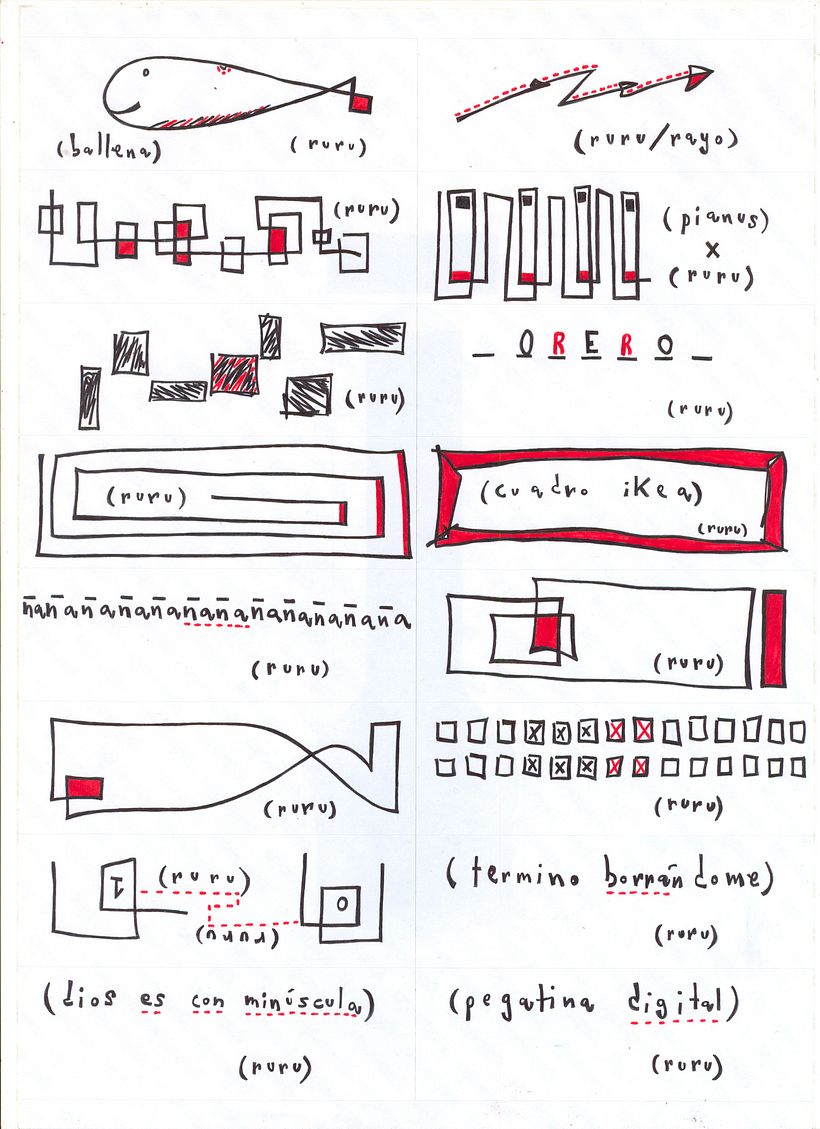 (ballena) (ruru)
(ruru/rayo)
(ruru)
(pianus)
x
(ruru)
(ruru)
_ O R E R O _
(ruru)
(ruru)
(cuadro ikea)
(ruru)
ñañañañañañañañañañañaña
(ruru)
(ruru)
(ruru)
x x x x x
x x x x x
(ruru)
1 (ruru) 0
(ruru)
(termino borrándome)
(ruru)
(dios es con minúscula)
(ruru)
(pegatina digital)
(ruru)